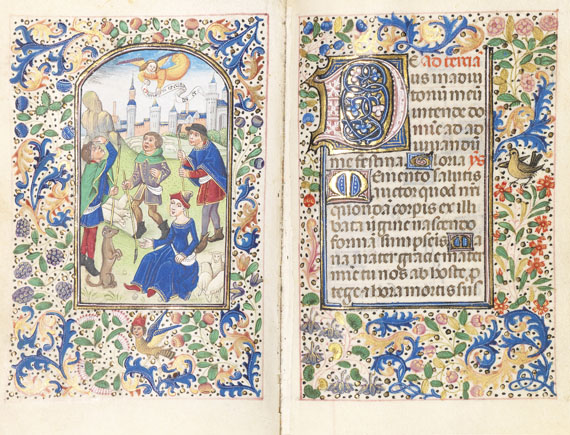 Ad tercia
Deus in adiu
toriū meū
intende do
mine ad ad
iuuandū
me festina Gloria ps
Memento salutis
auctor quod nr̄i
quondā corpis ex illi
bata uirgine nascendo
formā sūmpseris Ma
ria mater gracie mater
mīe tu nos ab hoste p
tege hora mortis sus